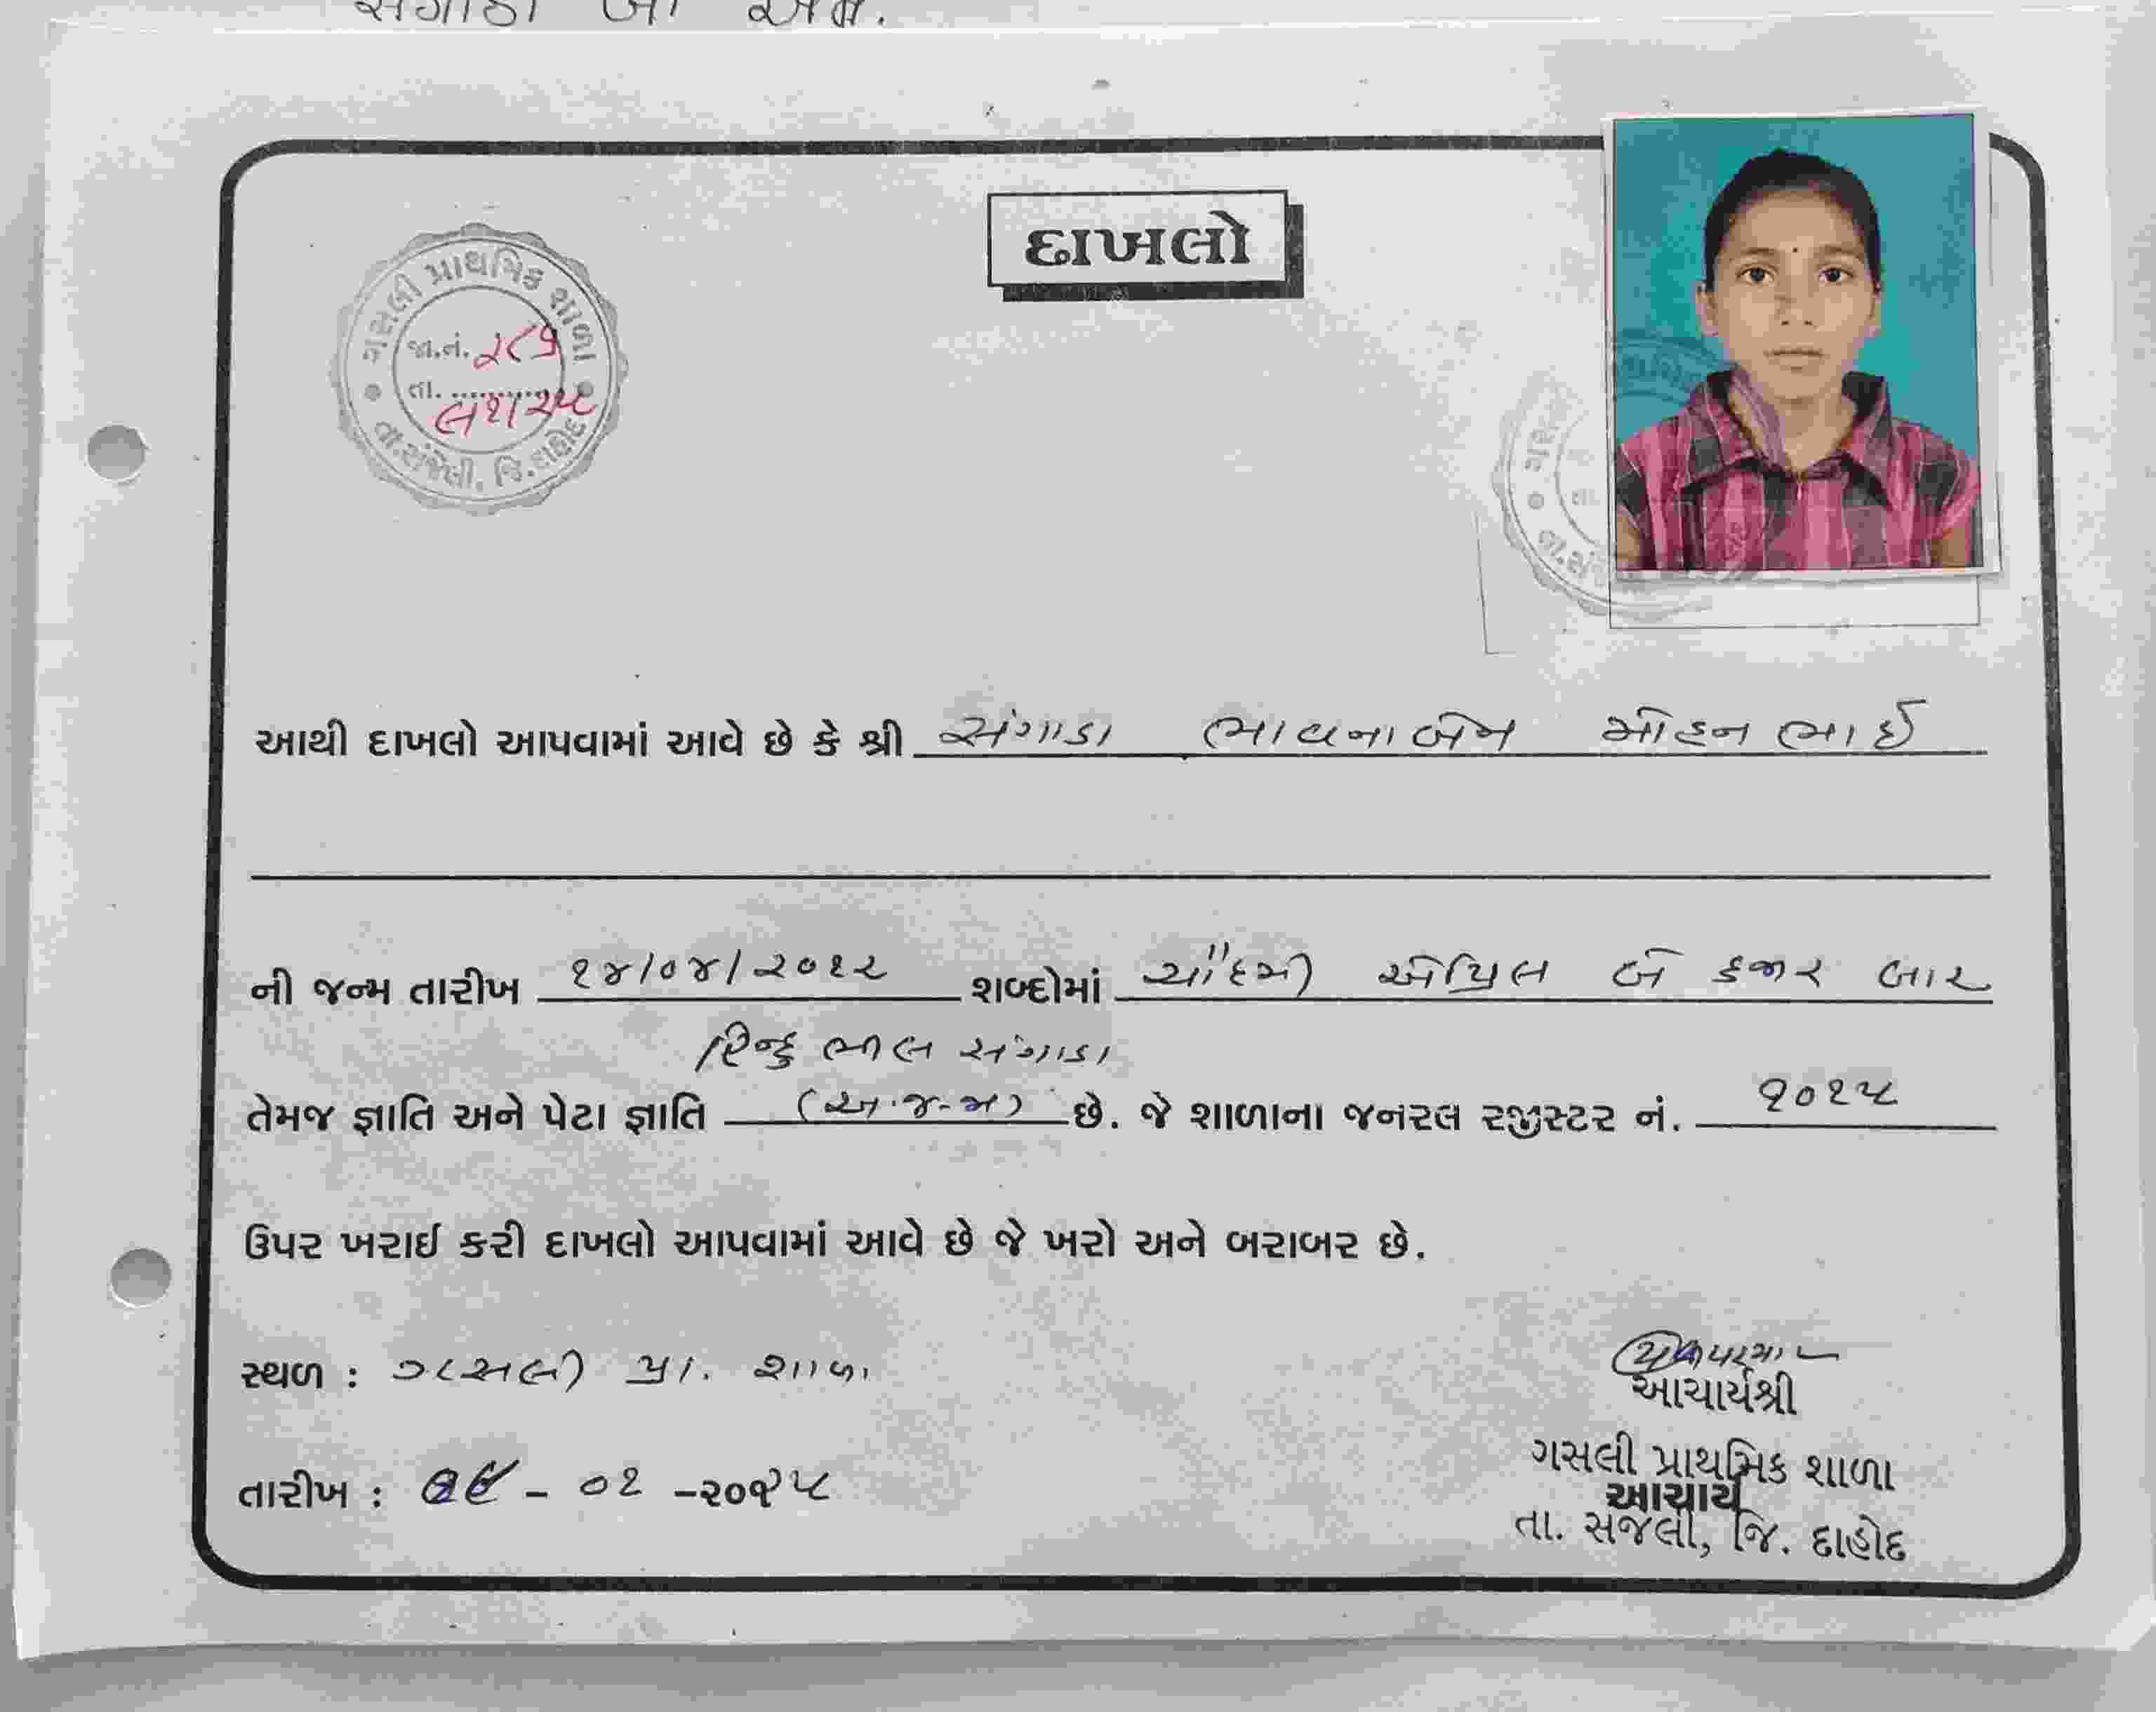 દાખલો
ગસલી પ્રાથમિક શાળા
જા.નં.
તા.
તા.સંજેલી, જિ.દાહોદ
આથી દાખલો આપવામાં આવે છે કે શ્રી સંગાડા ભાવનાબેન મોહનભાઈ
ની જન્મ તારીખ ૧૪/૦૪/૨૦૧૨ શબ્દોમાં ચૌદમી એપ્રિલ બે હજાર બાર
હિન્દુ ભીલ સંગાડા
તેમજ જ્ઞાતિ અને પેટા જ્ઞાતિ (અ.જ.જા) છે. જે શાળાના જનરલ રજીસ્ટર નં. ૧૦૧૫
ઉપર ખરાઈ કરી દાખલો આપવામાં આવે છે જે ખરો અને બરાબર છે.
સ્થળ : ગસલી પ્રા. શાળા
આચાર્યશ્રી
તારીખ : - ૦૧ -૨૦૨૫
ગસલી પ્રાથમિક શાળા
આચાર્ય
તા. સંજેલી, જિ. દાહોદ